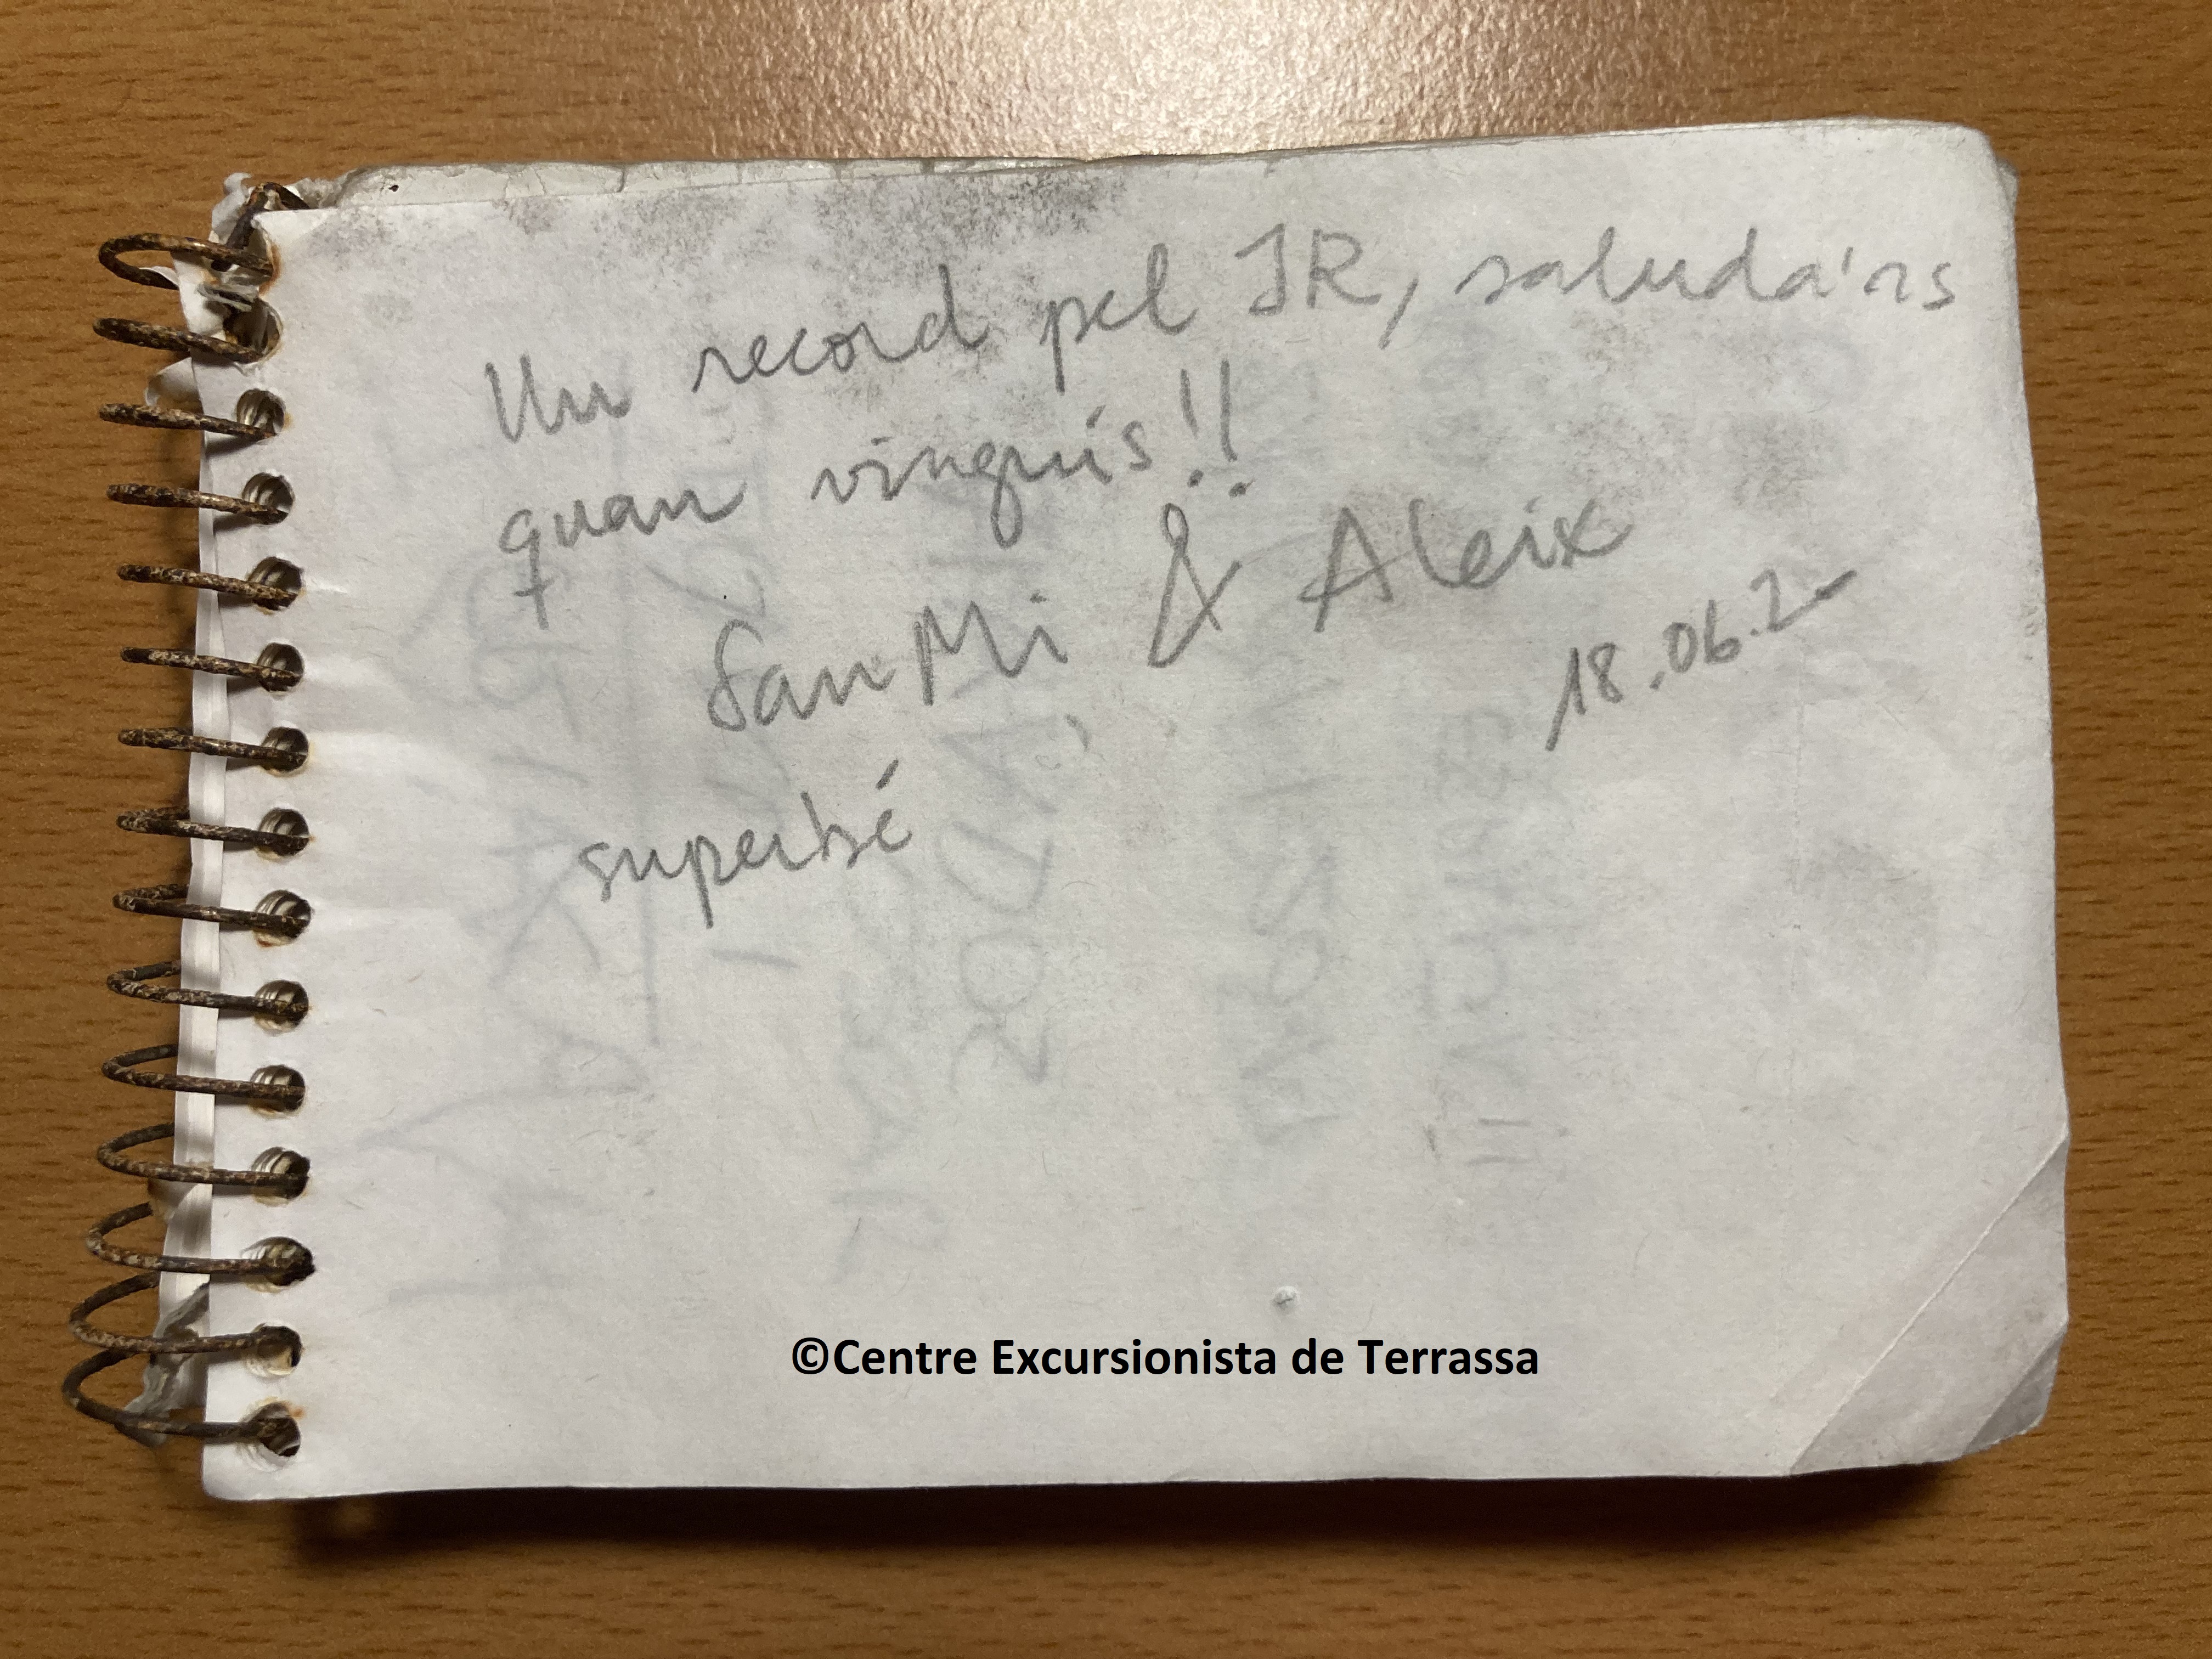 Un record pel JR, saluda'ns
quan vinguis!!
SanMi & Aleix
18.06.2
superbé
©Centre Excursionista de Terrassa